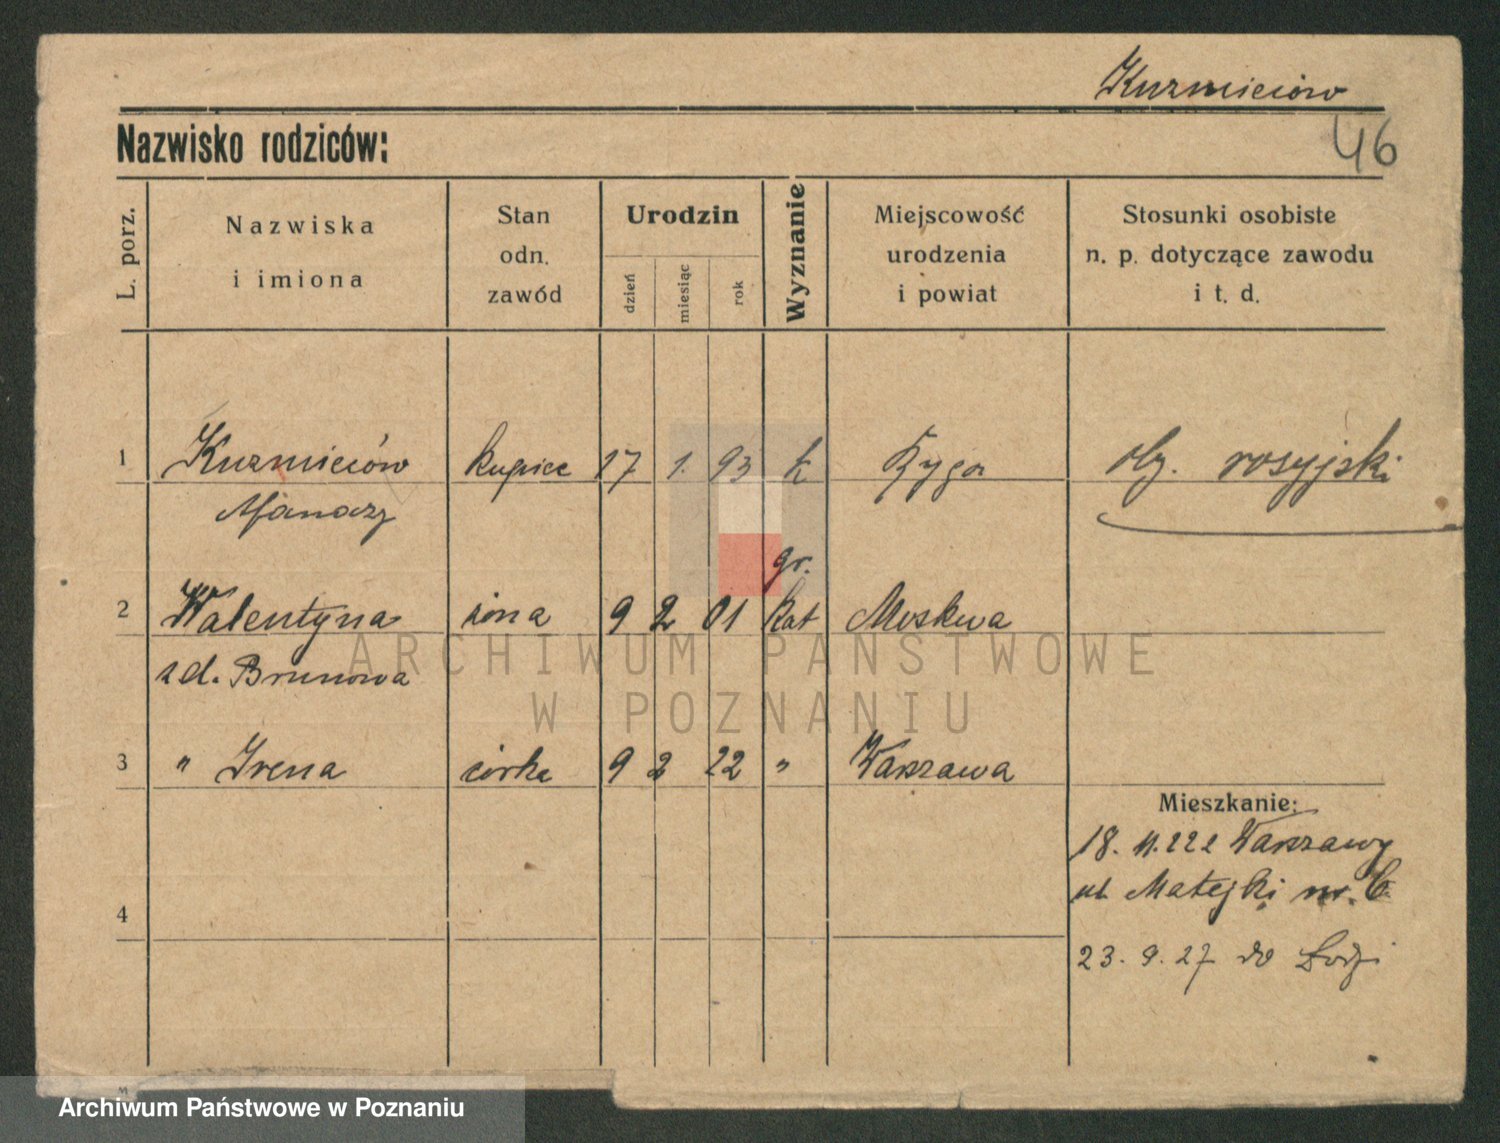 Kuzmiciów
46
Nazwisko rodziców:
L. porz.
Nazwiska
i imiona
Stan
odn.
zawód
Urodzin
dzień
miesiąc
rok
Wyznanie
Miejscowość
urodzenia
i powiat
Stosunki osobiste
n. p. dotyczące zawodu
i t. d.
1 Kuzmiciów kupiec 17 1. 93 k Ryga ob. rosyjski
Afanazy
gr.
2 Walentyna żona 9 2 01 kat Moskwa
z d. Brunowa
3 " Irena córka 9 2 22 " Warszawa
Mieszkanie:
18. 11. 222 Warszawy
ul. Matejki nr. 6.
4
23. 9. 27 do Łodzi
ARCHIWUM PAŃSTWOWE
W POZNANIU
Archiwum Państwowe w Poznaniu